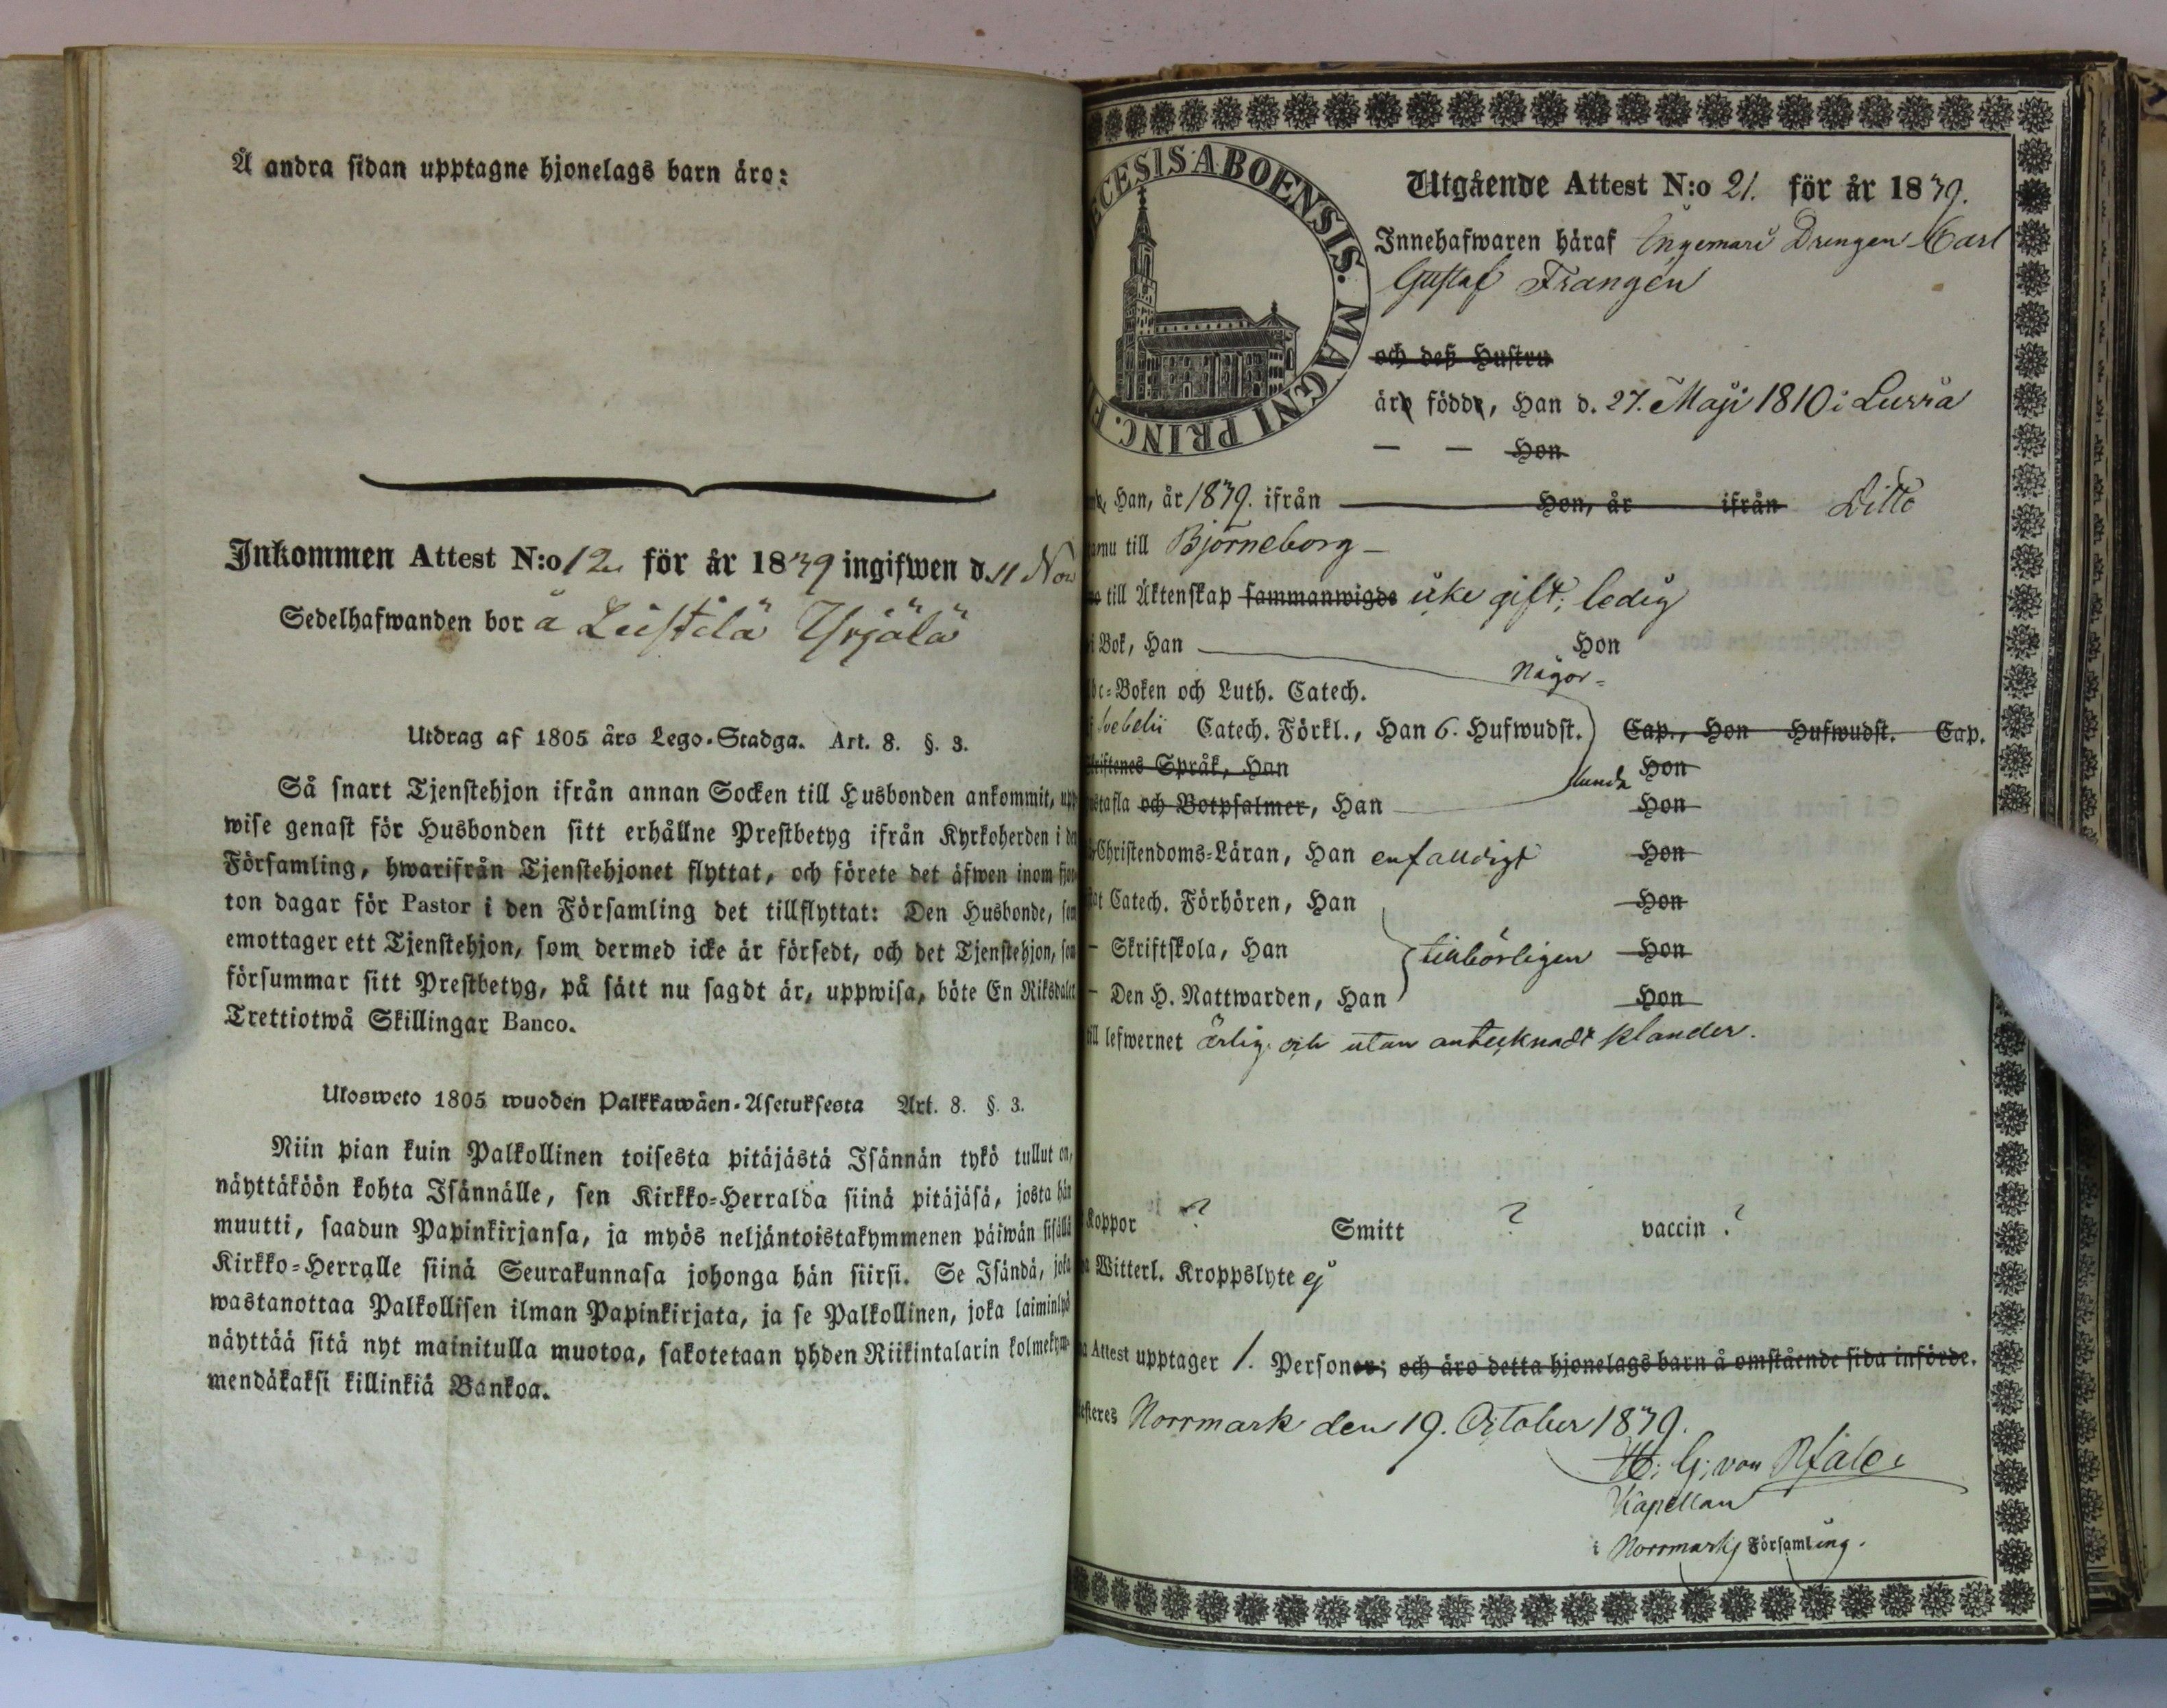 Å andra sidan upptagne hjonelags barn äro:
Inkommen Attest N:o 12 för år 1839 ingifwen d. 11 Nov
Sedelhafwanden bor å Leistilä Yrjälä
Utdrag af 1805 års Lego-Stadga. Art. 8. §. 3.
Så snart Tjenstehjon ifrån annan Socken till Husbonden ankommit, upp-
wise genast för Husbonden sitt erhållne Prestbetyg ifrån Kyrkoherden i den
Församling, hwarifrån Tjenstehjonet flyttat, och förete det äfwen inom fjor-
ton dagar för Pastor i den Församling det tillflyttat: Den Husbonde, som
emottager ett Tjenstehjon, som dermed icke är försedt, och det Tjenstehjon, som
försummar sitt Prestbetyg, på sätt nu sagdt är, uppwisa, böte En Riksdaler
Trettiotwå Skillingar Banco.
Ulosweto 1805 wuoden Palkkawäen-Asetuksesta Art. 8. §. 3.
Niin pian kuin Palkollinen toisesta pitäjästä Isännän tykö tullut on,
näyttäköön kohta Isännälle, sen Kirkko-Herralda siinä pitäjäsä, josta hän
muutti, saadun Papinkirjansa, ja myös neljäntoistakymmenen päiwän sisällä
Kirkko-Herralle siinä Seurakunnasa johonga hän siirsi. Se Isändä, joka
wastanottaa Palkollisen ilman Papinkirjata, ja se Palkollinen, joka laiminlyö
näyttää sitä nyt mainitulla muotoa, sakotetaan yhden Riikintalarin kolmekym-
mendäkaksi killinkiä Bankoa.
ECESIS ABOENSIS. MAGNI PRINC. F
Utgående Attest N:o 21. för år 1839.
Innehafwaren häraf Drengen Carl
Gustaf Frangén
och dess Hustru
äro födde, Han d. 27. Maji 1810 i
— — Hon
Han, år 1839. ifrån Hon, år ifrån Ditto
nu till Björneborg
till Äktenskap sammanwigde icke gift; ledig
i Bok, Han Hon
Någor-
bc-Boken och Luth. Catech.
Svebelii Catech. Förkl., Han 6. Hufwudst. Cap., Hon Hufwudst. Cap.
Skriftenes Språk, Han Hon
lunda
stafla och Botpsalmer, Han Hon
Christendoms-Läran, Han enfaldigt Hon
Catech. Förhören, Han Hon
— Skriftskola, Han tillbörligen Hon
— Den H. Nattwarden, Han Hon
till lefwernet ärlig och utan antecknadt klander.
Koppor ? Smitt ? vaccin ?
Witterl. Kroppslyte ej
Attest upptager 1. Personer; och äro detta hjonelags barn å omstående sida införde.
Norrmark den 19. October 1839.
Kapellan
i Norrmarks Församling.